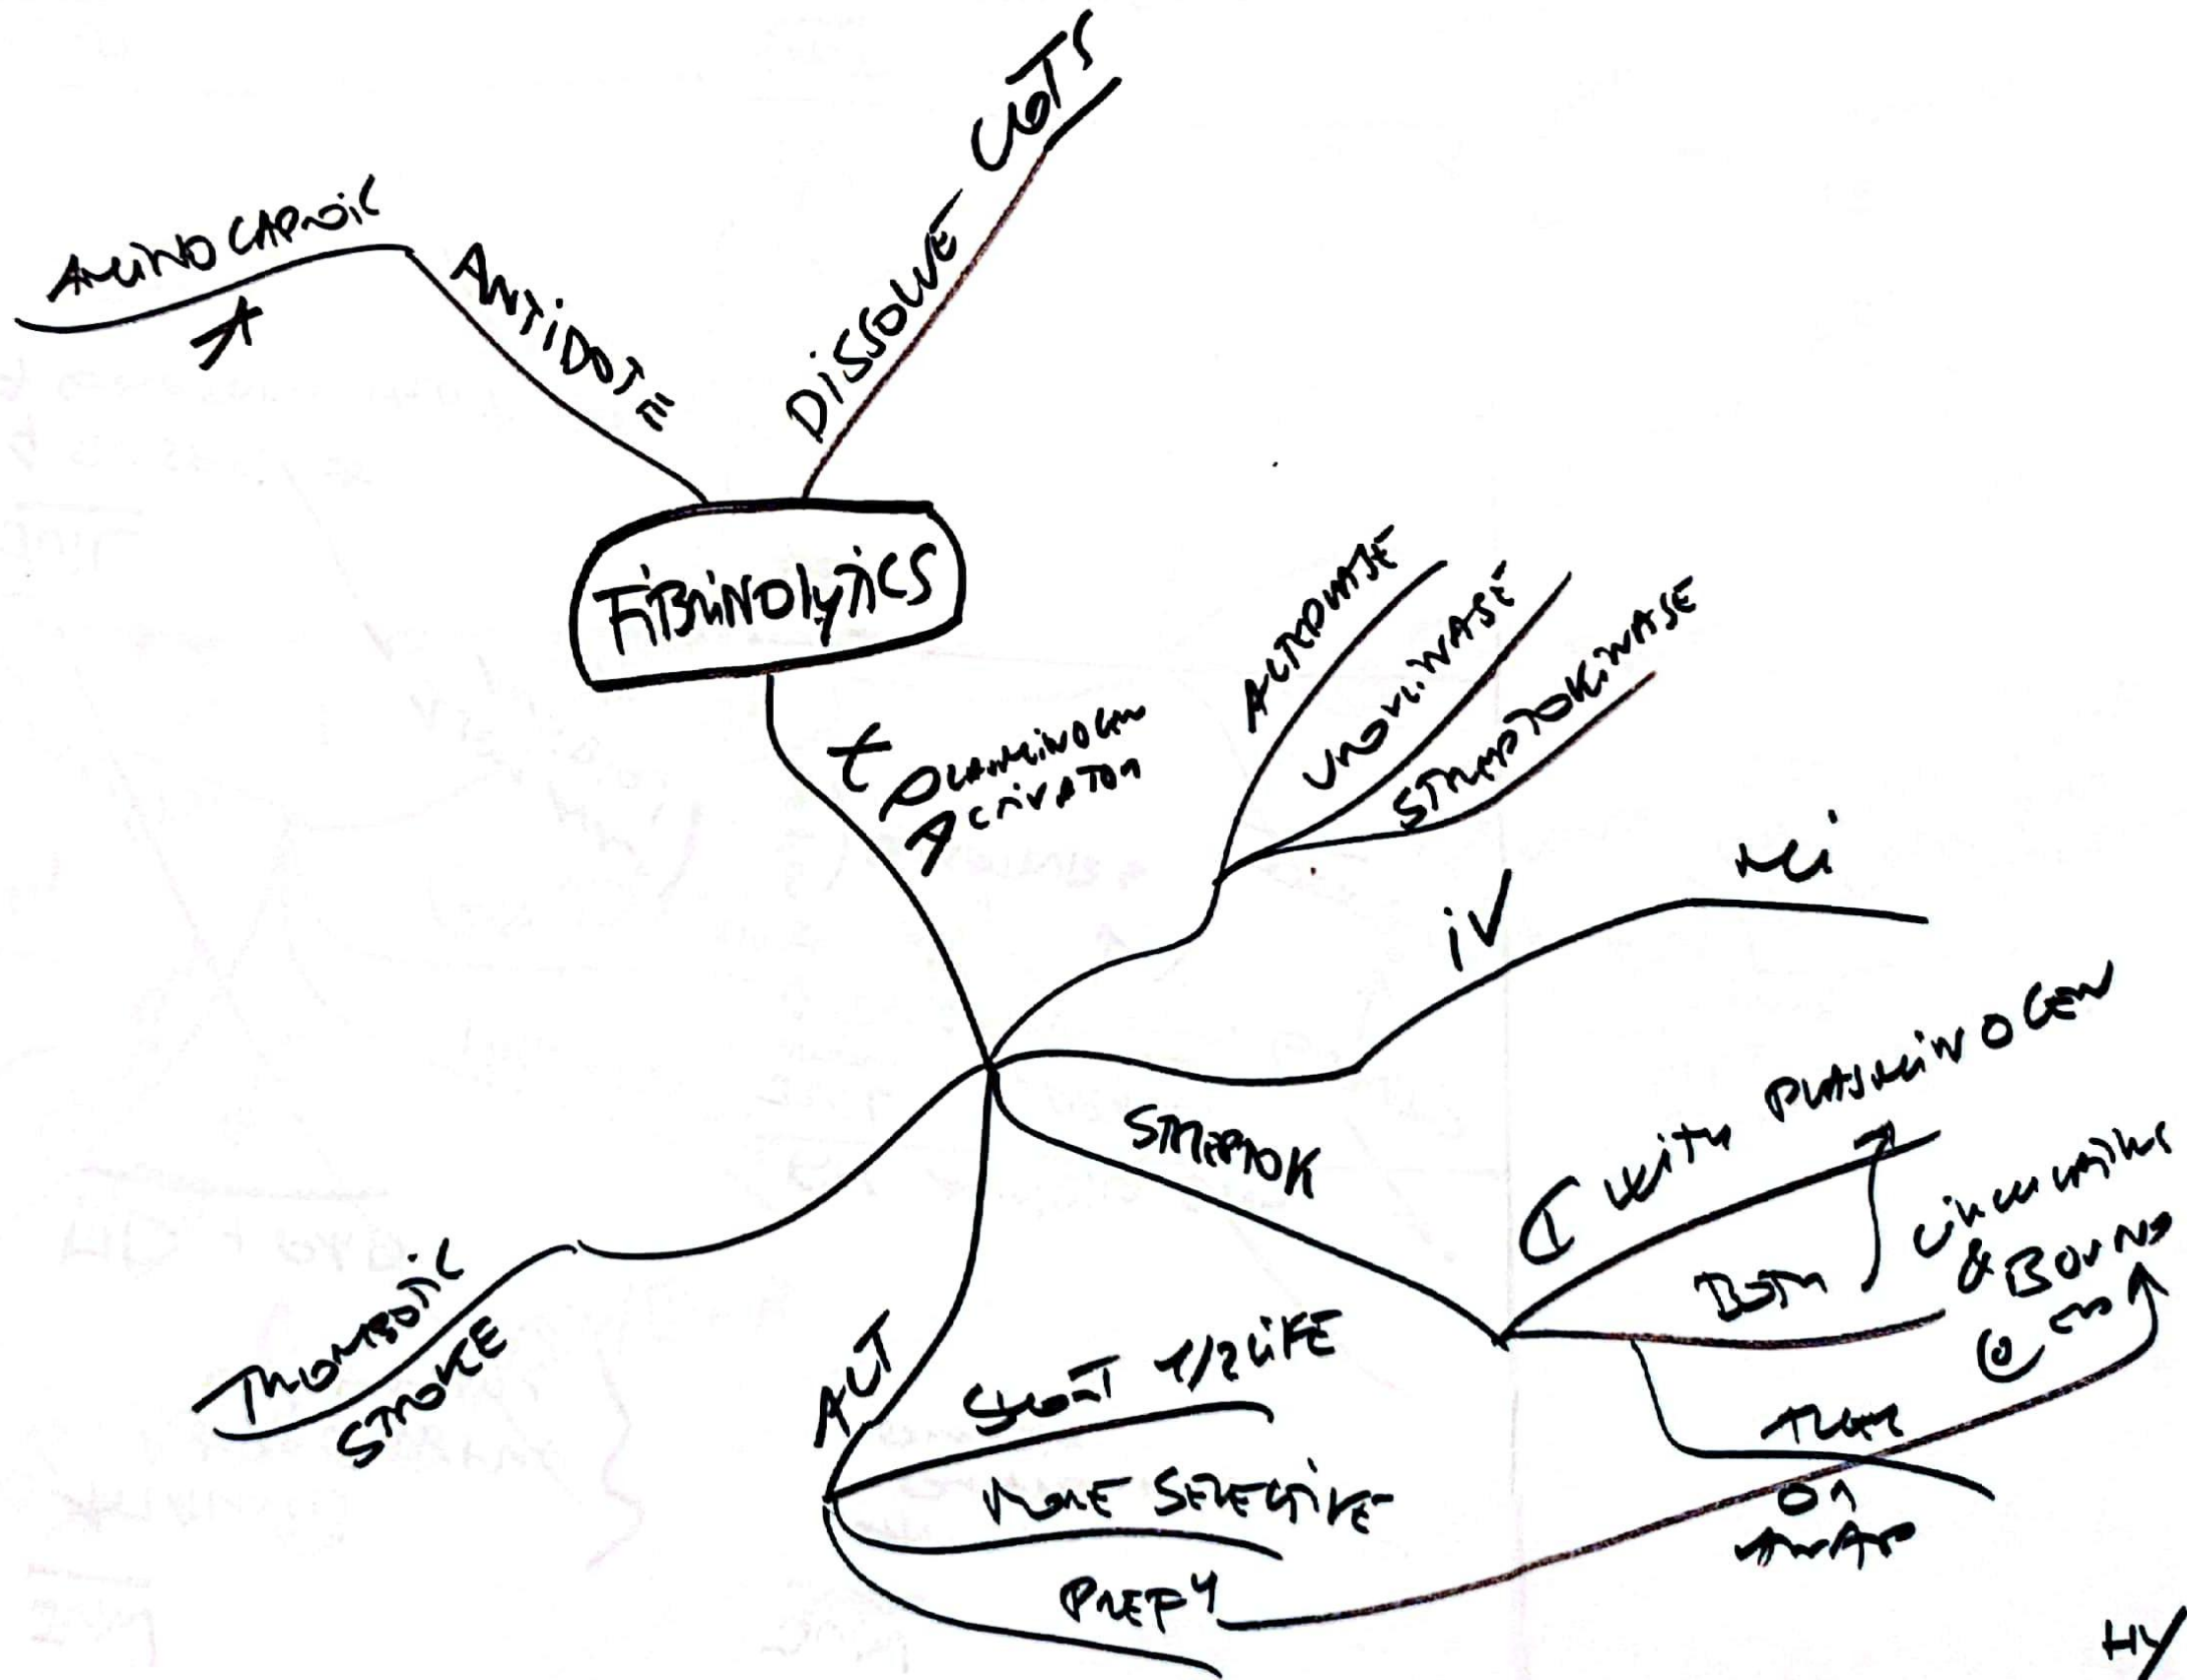 AMINO CAPROIC
ANTIDOTE
DISSOLVE CLOTS
FIBRINOLYTICS
t PLASMINOGEN
ACTIVATOR
ALTEPLASE
UROKINASE
STREPTOKINASE
IV
MI
STREPTOK
WITH PLASMINOGEN
BOTH
CIRCULATING
& BOUND
THROMBOTIC
STROKE
ALT
SHORT 1/2 LIFE
MORE SELECTIVE
PREF 4
OR
HY